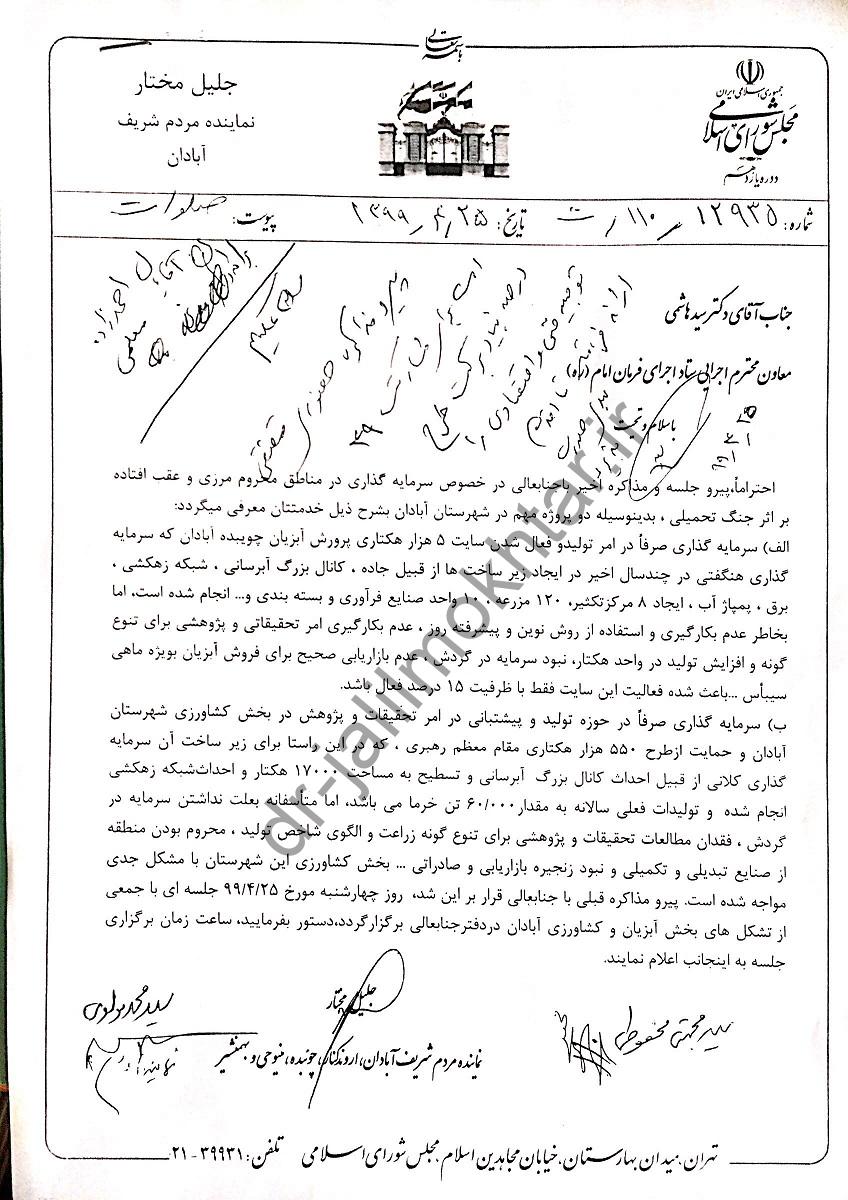 باسمه تعالی
جمهوری اسلامی ایران
مجلس شورای اسلامی
دوره یازدهم
جلیل مختار
نماینده مردم شریف
آبادان
شماره: ۱۲۹۳۵ / ۱۱۰ / ت
تاریخ: ۱۳۹۹/۴/۲۵
پیوست:
جناب آقای دکتر سید هاشمی
معاون محترم اجرایی ستاد اجرای فرمان امام (ره)
با سلام و تحیت
احتراماً،پیرو جلسه و مذاکره اخیر باجنابعالی در خصوص سرمایه گذاری در مناطق محروم مرزی و عقب افتاده
بر اثر جنگ تحمیلی ، بدینوسیله دو پروژه مهم در شهرستان آبادان بشرح ذیل خدمتتان معرفی میگردد:
الف) سرمایه گذاری صرفاً در امر تولیدو فعال شدن سایت ۵ هزار هکتاری پرورش آبزیان چویبده آبادان که سرمایه
گذاری هنگفتی در چندسال اخیر در ایجاد زیر ساخت ها از قبیل جاده ، کانال بزرگ آبرسانی ، شبکه زهکشی ،
برق ، پمپاژ آب ، ایجاد ۸ مرکزتکثیر، ۱۲۰ مزرعه ، ۱۰ واحد صنایع فرآوری و بسته بندی و... انجام شده است، اما
بخاطر عدم بکارگیری و استفاده از روش نوین و پیشرفته روز ، عدم بکارگیری امر تحقیقاتی و پژوهشی برای تنوع
گونه و افزایش تولید در واحد هکتار، نبود سرمایه در گردش ، عدم بازاریابی صحیح برای فروش آبزیان بویژه ماهی
سیبأس ...باعث شده فعالیت این سایت فقط با ظرفیت ۱۵ درصد فعال باشد.
ب) سرمایه گذاری صرفاً در حوزه تولید و پیشتبانی در امر تحقیقات و پژوهش در بخش کشاورزی شهرستان
آبادان و حمایت ازطرح ۵۵۰ هزار هکتاری مقام معظم رهبری ، که در این راستا برای زیر ساخت آن سرمایه
گذاری کلانی از قبیل احداث کانال بزرگ آبرسانی و تسطیح به مساحت ۱۷۰۰۰ هکتار و احداث‌شبکه زهکشی
انجام شده و تولیدات فعلی سالانه به مقدار۶۰/۰۰۰ تن خرما می باشد، اما متأسفانه بعلت نداشتن سرمایه در
گردش ، فقدان مطالعات تحقیقات و پژوهشی برای تنوع گونه زراعت و الگوی شاخص تولید ، محروم بودن منطقه
از صنایع تبدیلی و تکمیلی و نبود زنجیره بازاریابی و صادراتی ... بخش کشاورزی این شهرستان با مشکل جدی
مواجه شده است. پیرو مذاکره قبلی با جنابعالی قرار بر این شد، روز چهارشنبه مورخ ۹۹/۴/۲۵ جلسه ای با جمعی
از تشکل های بخش آبزیان و کشاورزی آبادان دردفترجنابعالی برگزارگردد،دستور بفرمایید، ساعت زمان برگزاری
جلسه به اینجانب اعلام نمایند.
جلیل مختار
نماینده مردم شریف آبادان، اروندکنار، چوئبده، مینوحی و بهمنشیر
سید مجتبی محفوظی
سید محمد مولوی
تهران، میدان بهارستان، خیابان مجاهدین اسلام، مجلس شورای اسلامی تلفن: ۳۹۹۳۱-۰۲۱
dr-jalilmokhtar.ir